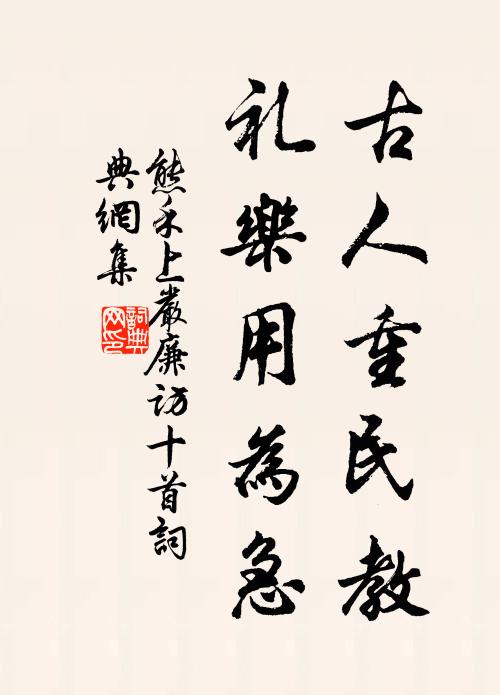 古人重民教
礼樂用為急
熊禾上嚴廉訪十首詞
典網集
詞典网印